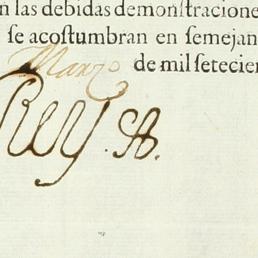 n las debidas demonstracione
ſe acostumbran en ſemejan
Marzo de mil ſetecien
Rey